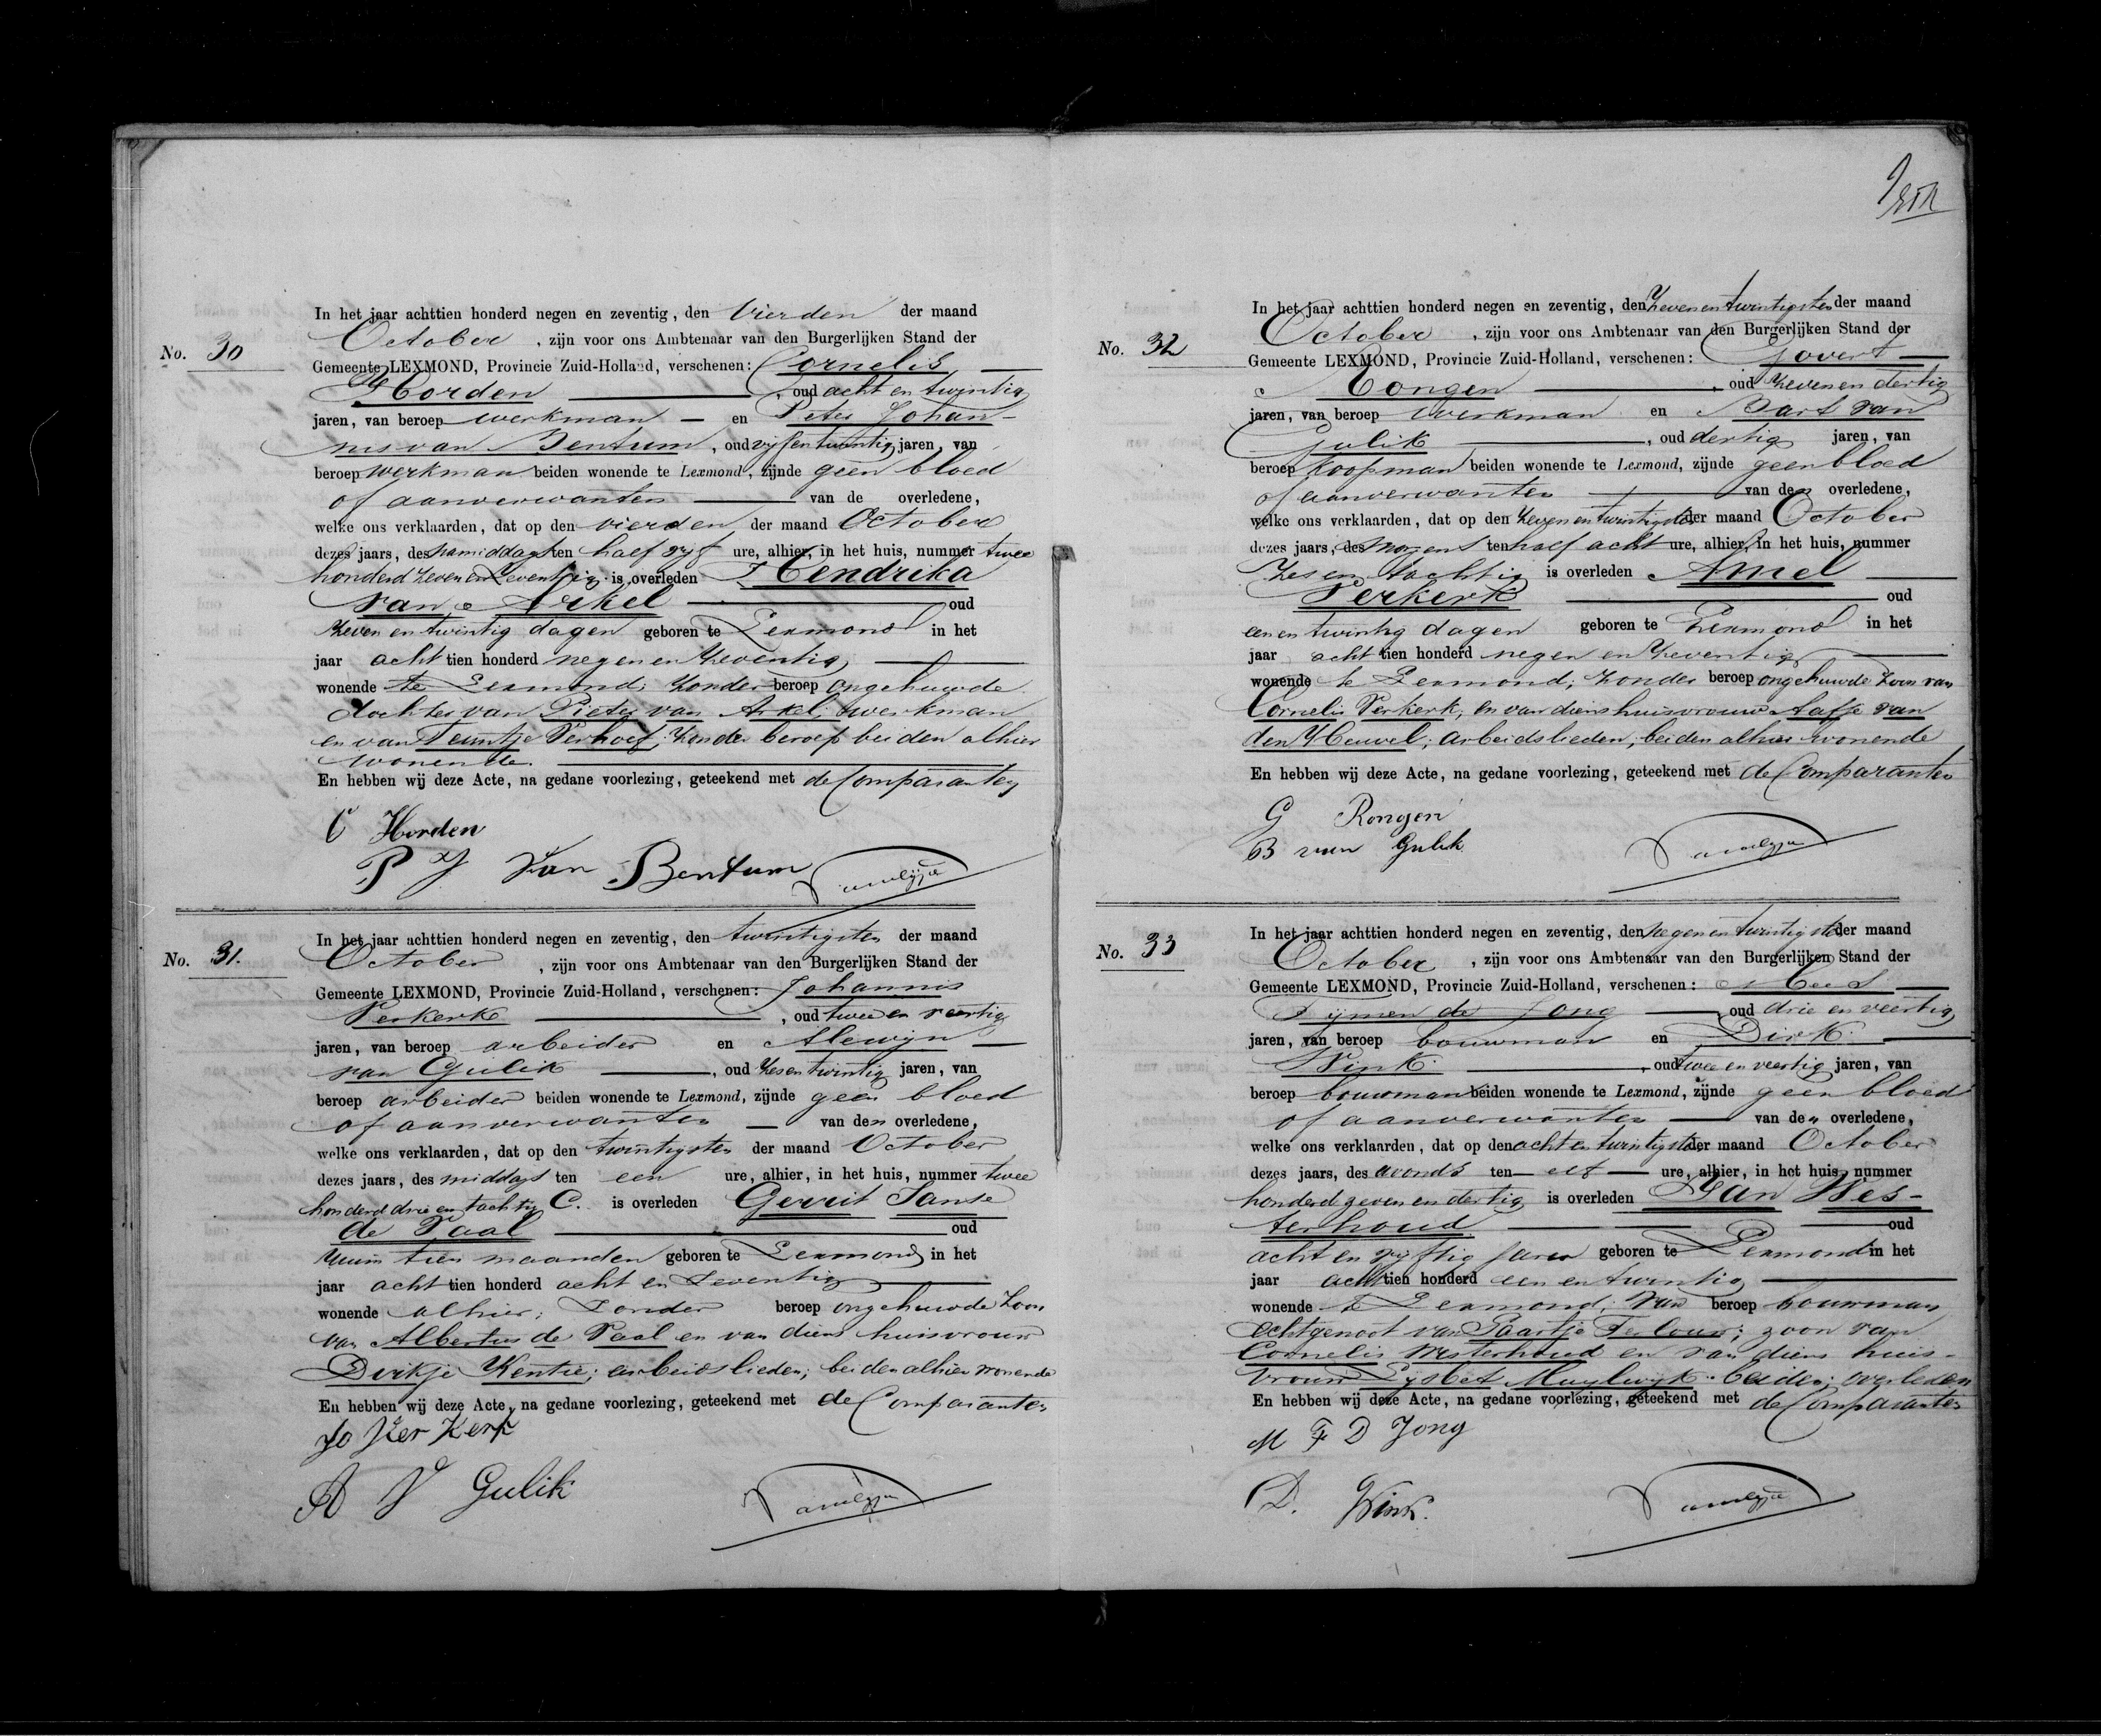 No. 30
In het jaar achttien honderd negen en zeventig, den Vierden der maand
October, zijn voor ons Ambtenaar van den Burgerlijken Stand der
Gemeente LEXMOND, Provincie Zuid-Holland, verschenen: Cornelis
Horden, oud acht en twintig
jaren, van beroep werkman en Peter Johan-
nis van Bentum, oud vijf en twintig jaren, van
beroep werkman beiden wonende te Lexmond, zijnde geen bloed
of aanverwanten van de overledene,
welke ons verklaarden, dat op den vierden der maand October
dezes jaars, des namiddags ten half vijf ure, alhier, in het huis, nummer twee
honderd zeven en zeventig is overleden Hendrika
van Arkel oud
zeven en twintig dagen geboren te Lexmond in het
jaar achttien honderd negen en zeventig
wonende te Lexmond; zonder beroep ongehuwde
dochter van Pieter van Arkel; werkman
en van Teuntje Verhoef; zonder beroep beiden alhier
wonende.
En hebben wij deze Acte, na gedane voorlezing, geteekend met de Comparanten
C Horden
P J Van Bentum
No. 31.
In het jaar achttien honderd negen en zeventig, den twintigsten der maand
October, zijn voor ons Ambtenaar van den Burgerlijken Stand der
Gemeente LEXMOND, Provincie Zuid-Holland, verschenen: Johannis
Verkerk, oud twee en veertig
jaren, van beroep arbeider en Alewijn
van Gulik, oud zes en twintig jaren, van
beroep arbeider beiden wonende te Lexmond, zijnde geen bloed
of aanverwanten van den overledene,
welke ons verklaarden, dat op den twintigsten der maand October
dezes jaars, des middags ten een ure, alhier, in het huis, nummer twee
honderd drie en tachtig C. is overleden Gerrit Janse
de Paal oud
ruim tien maanden geboren te Lexmond in het
jaar achttien honderd acht en zeventig
wonende alhier; zonder beroep ongehuwde zoon
van Albertus de Paal en van diens huisvrouw
Dirkje Kentie; arbeidslieden; beiden alhier wonende
En hebben wij deze Acte, na gedane voorlezing, geteekend met de Comparanten
Jo Ver Kerk
A V Gulik
No. 32
In het jaar achttien honderd negen en zeventig, den zeven en twintigsten der maand
October, zijn voor ons Ambtenaar van den Burgerlijken Stand der
Gemeente LEXMOND, Provincie Zuid-Holland, verschenen: Govert
Rongen, oud zeven en dertig
jaren, van beroep Werkman en Bart van
Gulik, oud dertig jaren, van
beroep koopman beiden wonende te Lexmond, zijnde geen bloed
of aanverwanten van den overledene,
welke ons verklaarden, dat op den zeven en twintigsten der maand October
dezes jaars, des morgens ten half acht ure, alhier, in het huis, nummer
zes en tachtig is overleden Amel
Verkerk oud
een en twintig dagen geboren te Lexmond in het
jaar achttien honderd negen en zeventig
wonende te Lexmond; zonder beroep ongehuwde zoon van
Cornelis Verkerk, en van diens huisvrouw Aafje van
den Heuvel; arbeidslieden; beiden alhier wonende
En hebben wij deze Acte, na gedane voorlezing, geteekend met de Comparanten
G Rongen
B van Gulik
No. 33
In het jaar achttien honderd negen en zeventig, den negen en twintigsten der maand
October, zijn voor ons Ambtenaar van den Burgerlijken Stand der
Gemeente LEXMOND, Provincie Zuid-Holland, verschenen: Mees
Fijmen de Jong oud drie en veertig
jaren, van beroep bouwman en Dirk
Wink, oud twee en veertig jaren, van
beroep bouwman beiden wonende te Lexmond, zijnde geen bloed
of aanverwanten van den overledene,
welke ons verklaarden, dat op den acht en twintigsten der maand October
dezes jaars, des avonds ten elf ure, alhier, in het huis, nummer
honderd zeven en dertig is overleden Jan Wes-
terhoud oud
acht en vijftig jaren geboren te Lexmond in het
jaar achttien honderd een en twintig
wonende te Lexmond; van beroep bouwman
echtgenoot van Paartje Terlouw; zoon van
Cornelis Westerhoud en van diens huis-
vrouw Lijsbet Muylwijk. beiden overleden
En hebben wij deze Acte, na gedane voorlezing, geteekend met de Comparanten
M F D Jong
D. Wink.